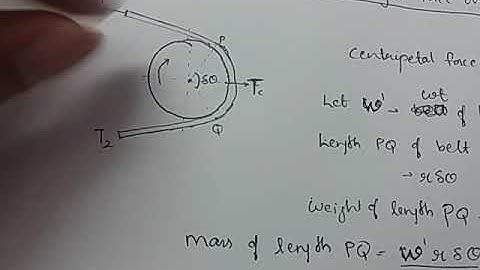 force
centripetal force
P
δθ
Tc
Let w' → wt of
T2
Q
Length PQ of belt
→ rδθ
weight of length PQ
mass of length PQ = w' r δθ